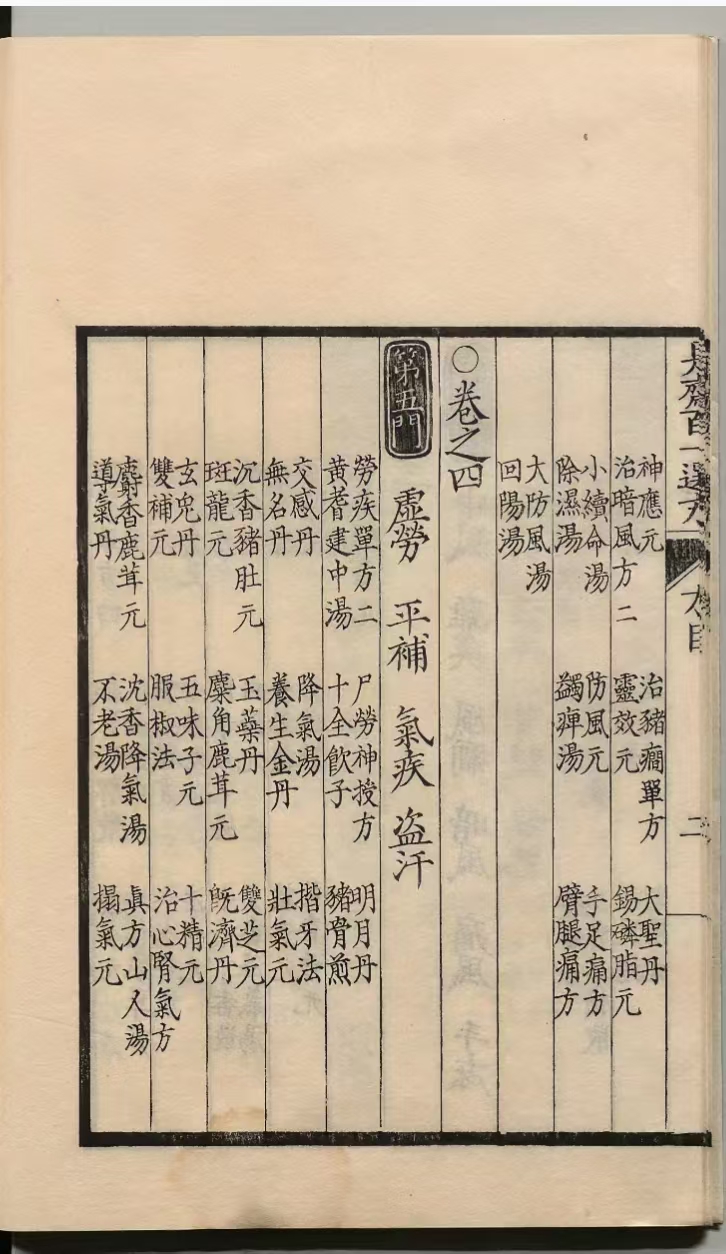 是齋百一選方 二
神應元 治豬癇單方 大聖丹
治暗風方二 靈效元 錫磷脂元
小續命湯 防風元 手足痛方
除濕湯 蠲痹湯 臂腿痛方
大防風湯
回陽湯
○卷之四
第五門 虛勞 平補 氣疾 盜汗
勞疾單方二 尸勞神授方 明月丹
黃耆建中湯 十全飲子 豬骨煎
交感丹 降氣湯 揩牙法
無名丹 養生金丹 壯氣元
沉香豬肚元 玉藥丹 雙芝元
斑龍元 麋角鹿茸元 既濟丹
玄兔丹 五味子元 十精元
雙補元 服椒法 治心腎氣方
麝香鹿茸元 沈香降氣湯 眞方山人湯
導氣丹 不老湯 搨氣元